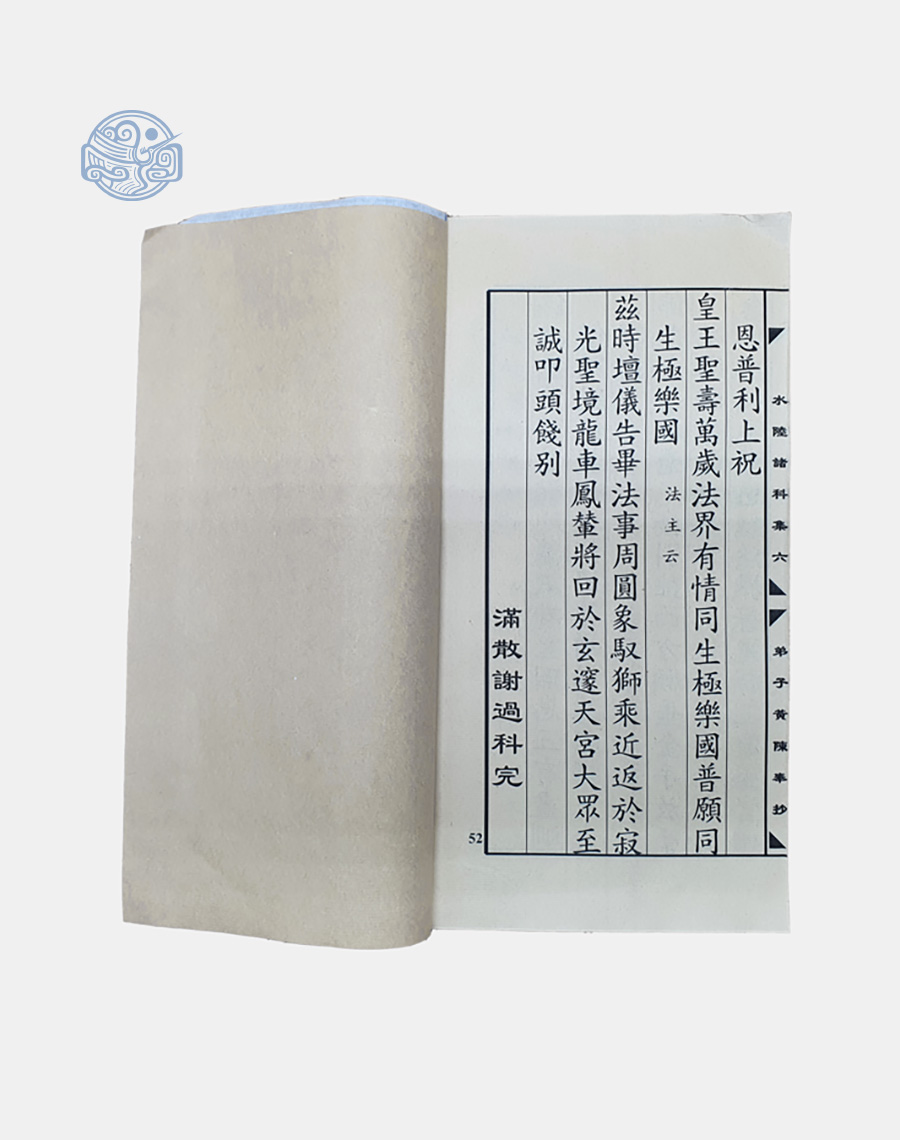 水陸諸科集六
弟子黃陳奉抄
恩普利上祝
皇王聖壽萬歲法界有情同生極樂國普願同
生極樂國 法主云
茲時壇儀告畢法事周圓象馭獅乘近返於寂
光聖境龍車鳳輦將回於玄邃天宮大眾至
誠叩頭餞別
滿散謝過科完
52